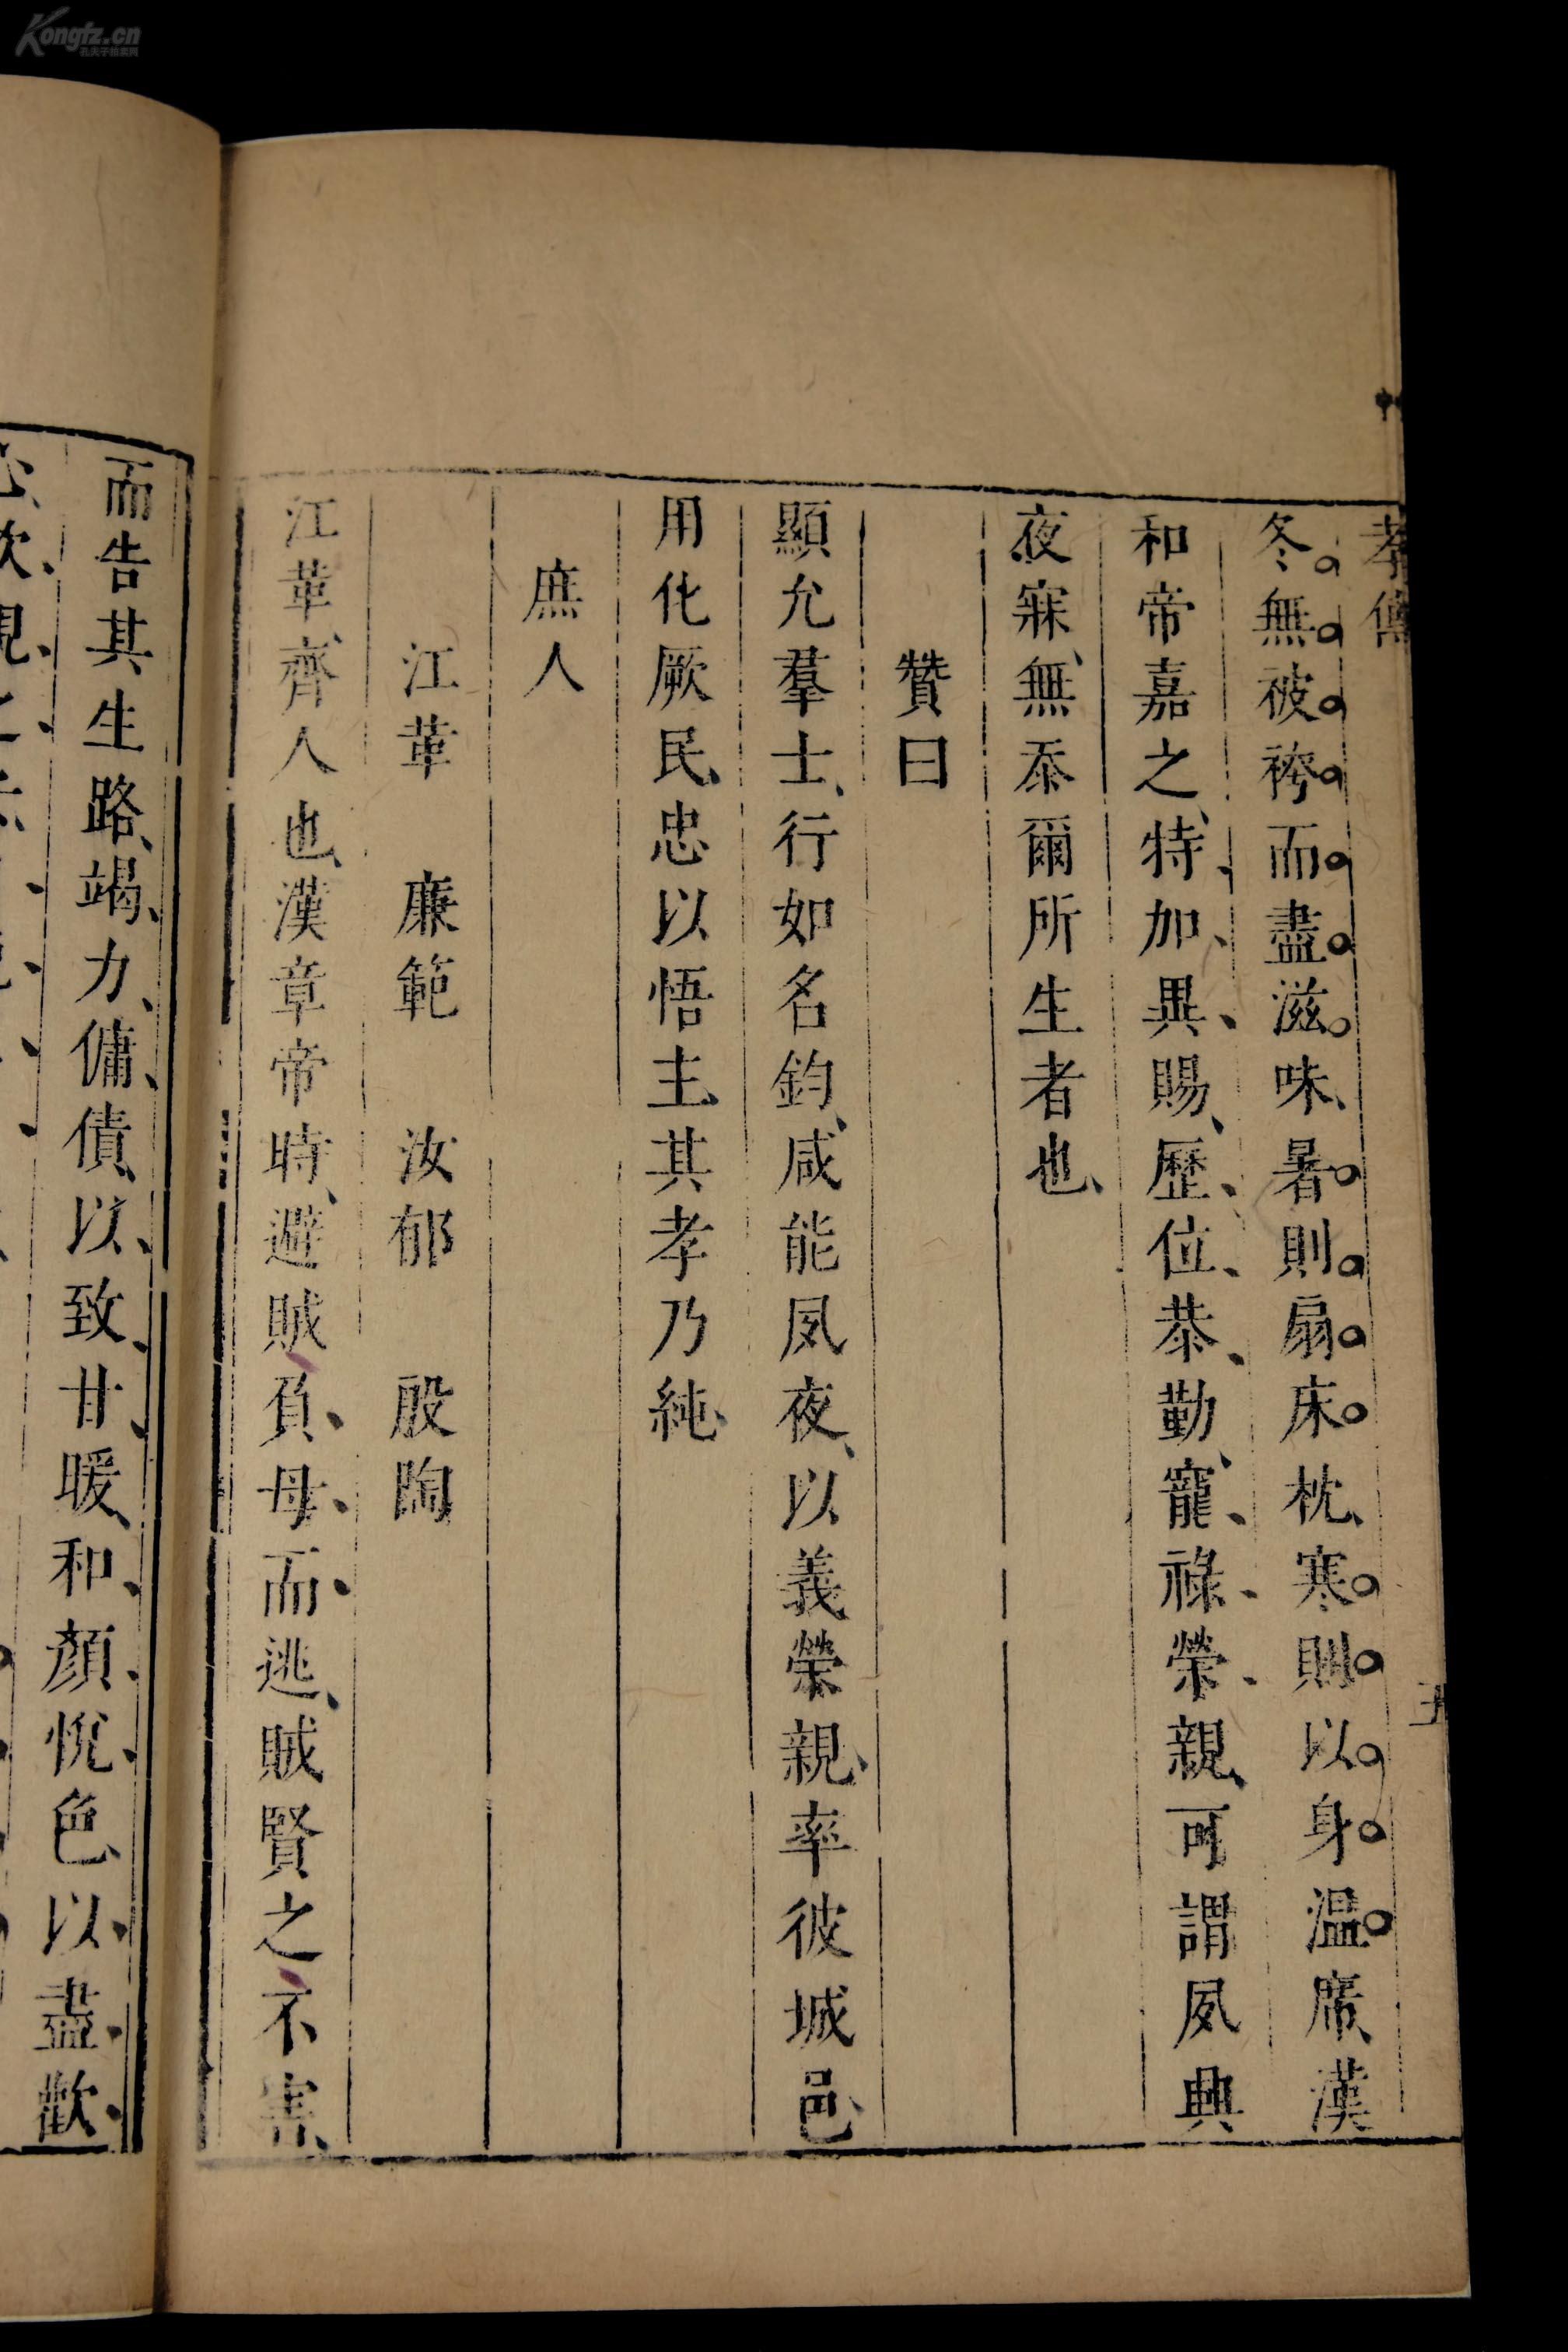 Kongfz.cn
孔夫子拍卖网
孝傳
五
冬無被袴而盡滋味、暑則扇床枕、寒則以身溫席、漢
和帝嘉之、特加異賜、歷位恭勤、寵祿榮親、可謂夙興
夜寐、無忝爾所生者也、
贊曰
顯允羣士、行如名鈞、咸能夙夜、以義榮親、率彼城邑、
用化厥民、忠以悟主、其孝乃純、
庶人
江革 廉範 汝郁 殷陶
江革、齊人也、漢章帝時、避賊負母而逃、賊賢之、不害、
而告其生路、竭力傭債、以致甘暖、和顏悅色、以盡歡